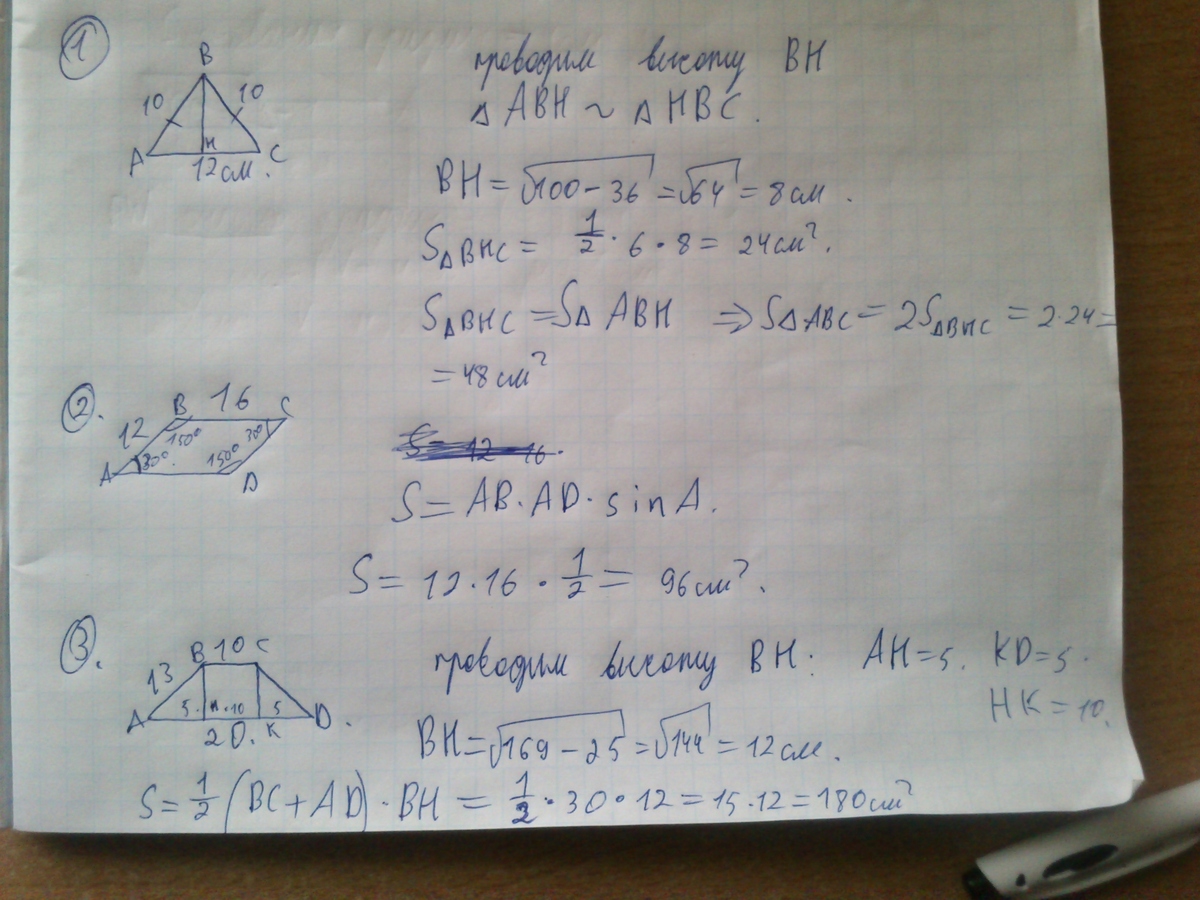 1
B
10 10
A H C
12 см.
проводим высоту BH
△ ABH ~ △ HBC.
BH = √100 - 36 = √64 = 8 см.
S△BHC = 1/2 · 6 · 8 = 24 см².
S△BHC = S△ ABH ⇒ S△ABC = 2S△BHC = 2·24 =
= 48 см²
2.
B 16 C
12 150° 30°
A 30°. 150° D
S = 12 16.
S = AB · AD · sin A.
S = 12 · 16 · 1/2 = 96 см².
3.
B 10 C
13
A 5. H · 10 5 D.
20. K
проводим высоту BH. AH = 5. KD = 5.
HK = 10.
BH = √169 - 25 = √144 = 12 см.
S = 1/2 (BC + AD) · BH = 1/2 · 30 · 12 = 15 · 12 = 180 см²